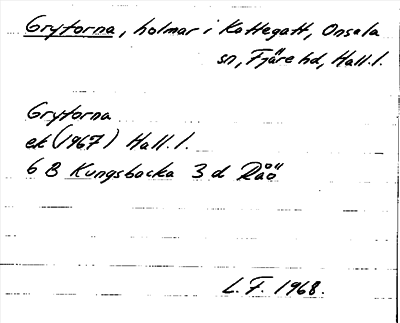 Grytorna, holmar i Kattegatt, Onsala
sn, Fjäre hd, Hall. l.
Grytorna
ek (1967) Hall. l.
6 B Kungsbacka 3 d Råö
L. F. 1968.